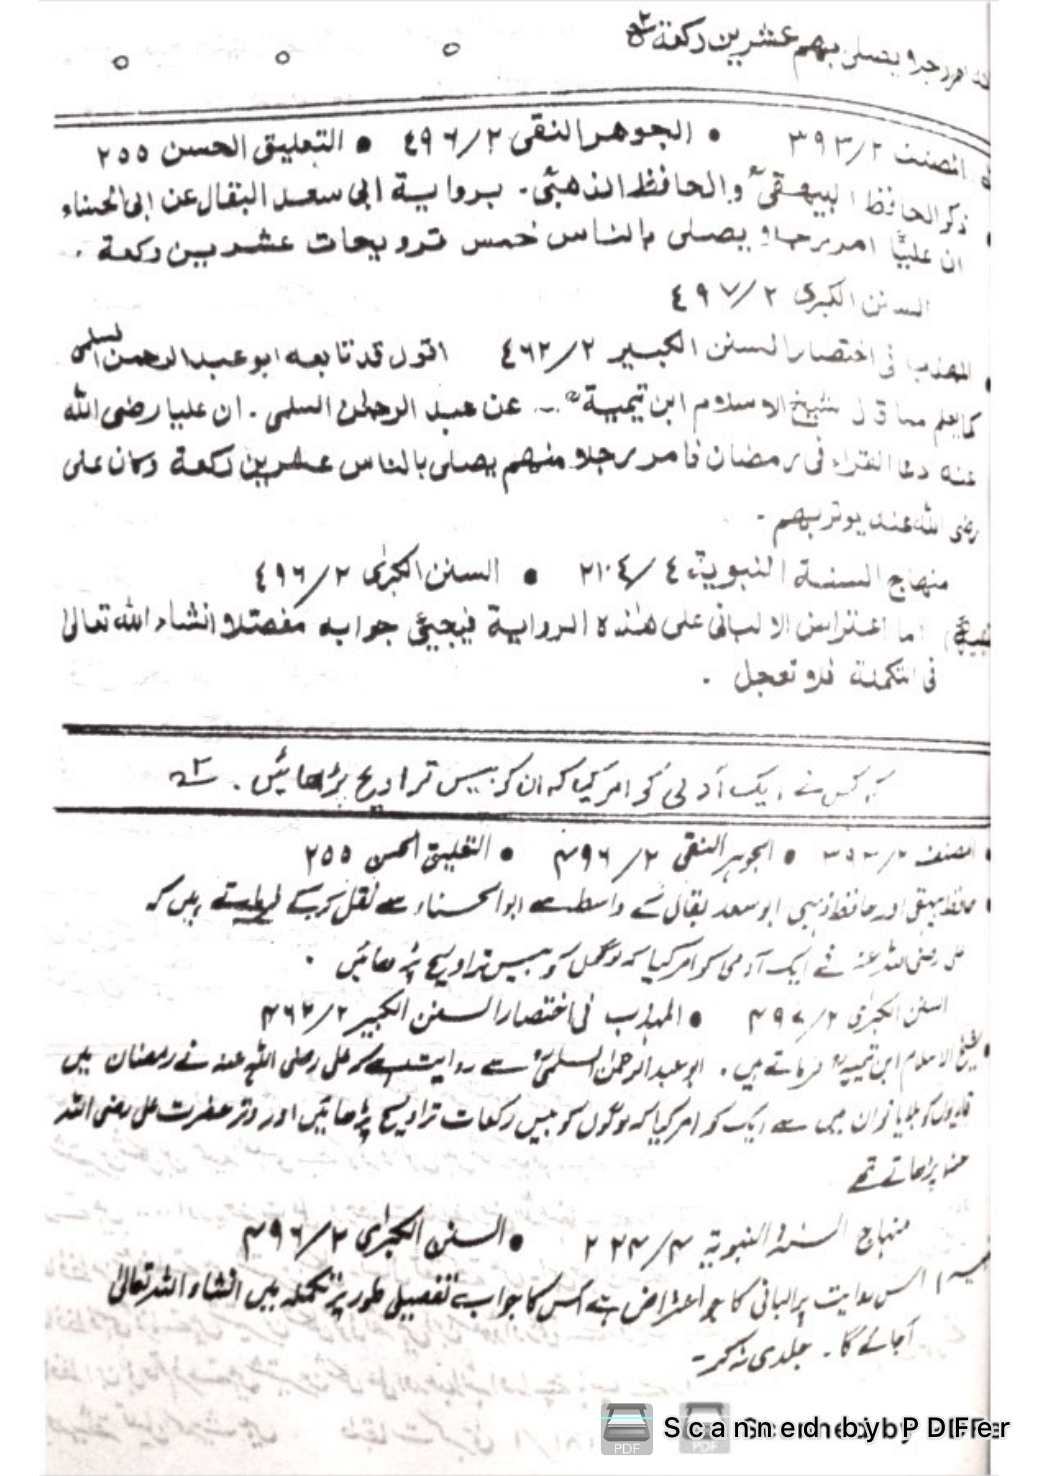 امر رجلا يصلى بهم عشرين ركعة
المصنف ٣٩٣/٢ • الجوهر النقى ٤٩٦/٢ • التعليق الحسن ٢٥٥
ذكر الحافظ البيهقى والحافظ الذهبى. برواية ابى سعد البقال عن ابى الحسناء
ان عليا امر رجلا يصلى بالناس خمس ترويحات عشرين ركعة .
السنن الكبرى ٤٩٧/٢
المهذب فى اختصار السنن الكبير ٤٦٢/٢ اقول قد تابعه ابو عبد الرحمن السلمى
كما يعلم مما قال شيخ الاسلام ابن تيمية عن عبد الرحمٰن السلمى . ان عليا رضى الله
عنه دعا القراء فى رمضان فامر رجلا منهم يصلى بالناس عشرين ركعة وكان على
رضى الله عنه يوتر بهم -
منهاج السنة النبوية ٤/ • السنن الكبرٰى ٤٩٦/٢
اما اعتراض الالبانى على هٰذه الرواية فيجيئ جوابه مفصلا انشاء الله تعالىٰ
فى التكملة فلا تعجل .
نے ایک آدمی کو امر کیا کہ ان کو بیس تراویح پڑھائیں .
المصنف ٣٩٣/٢ • الجوہر النقی ۴۹۶/۲ • التعلیق الحسن ۲۵۵
حافظ بیہقی اور حافظ ذہبی ابو سعد بقال کے واسطے سے ابو الحسناء سے نقل کرکے ہیں کہ
علی رضی اللہ عنہ نے ایک آدمی کو امر کیا کہ لوگوں کو بیس تراویح پڑھائیں .
السنن الکبرٰی ۴۹۷/۲ • المہذب فی اختصار السنن الکبیر ۴۶۲/۲
شیخ الاسلام ابن تیمیہ فرماتے ہیں . ابو عبد الرحمٰن السلمی سے روایت ہے کہ علی رضی اللہ عنہ نے رمضان میں
قاریوں کو بلایا تو ان میں سے ایک کو امر کیا کہ لوگوں کو بیس رکعات تراویح پڑھائیں اور وتر حضرت علی رضی اللہ
عنہ پڑھاتے تھے
منہاج السنۃ النبویۃ ۲۲۴/۴ • السنن الکبرٰی ۴۹۶/۲
اس روایت پر البانی کا جو اعتراض ہے اس کا جواب تفصیلی طور پر تکملہ میں انشاء اللہ تعالیٰ
آجائے گا . جلدی نہ کر -
Scanned by PDFer